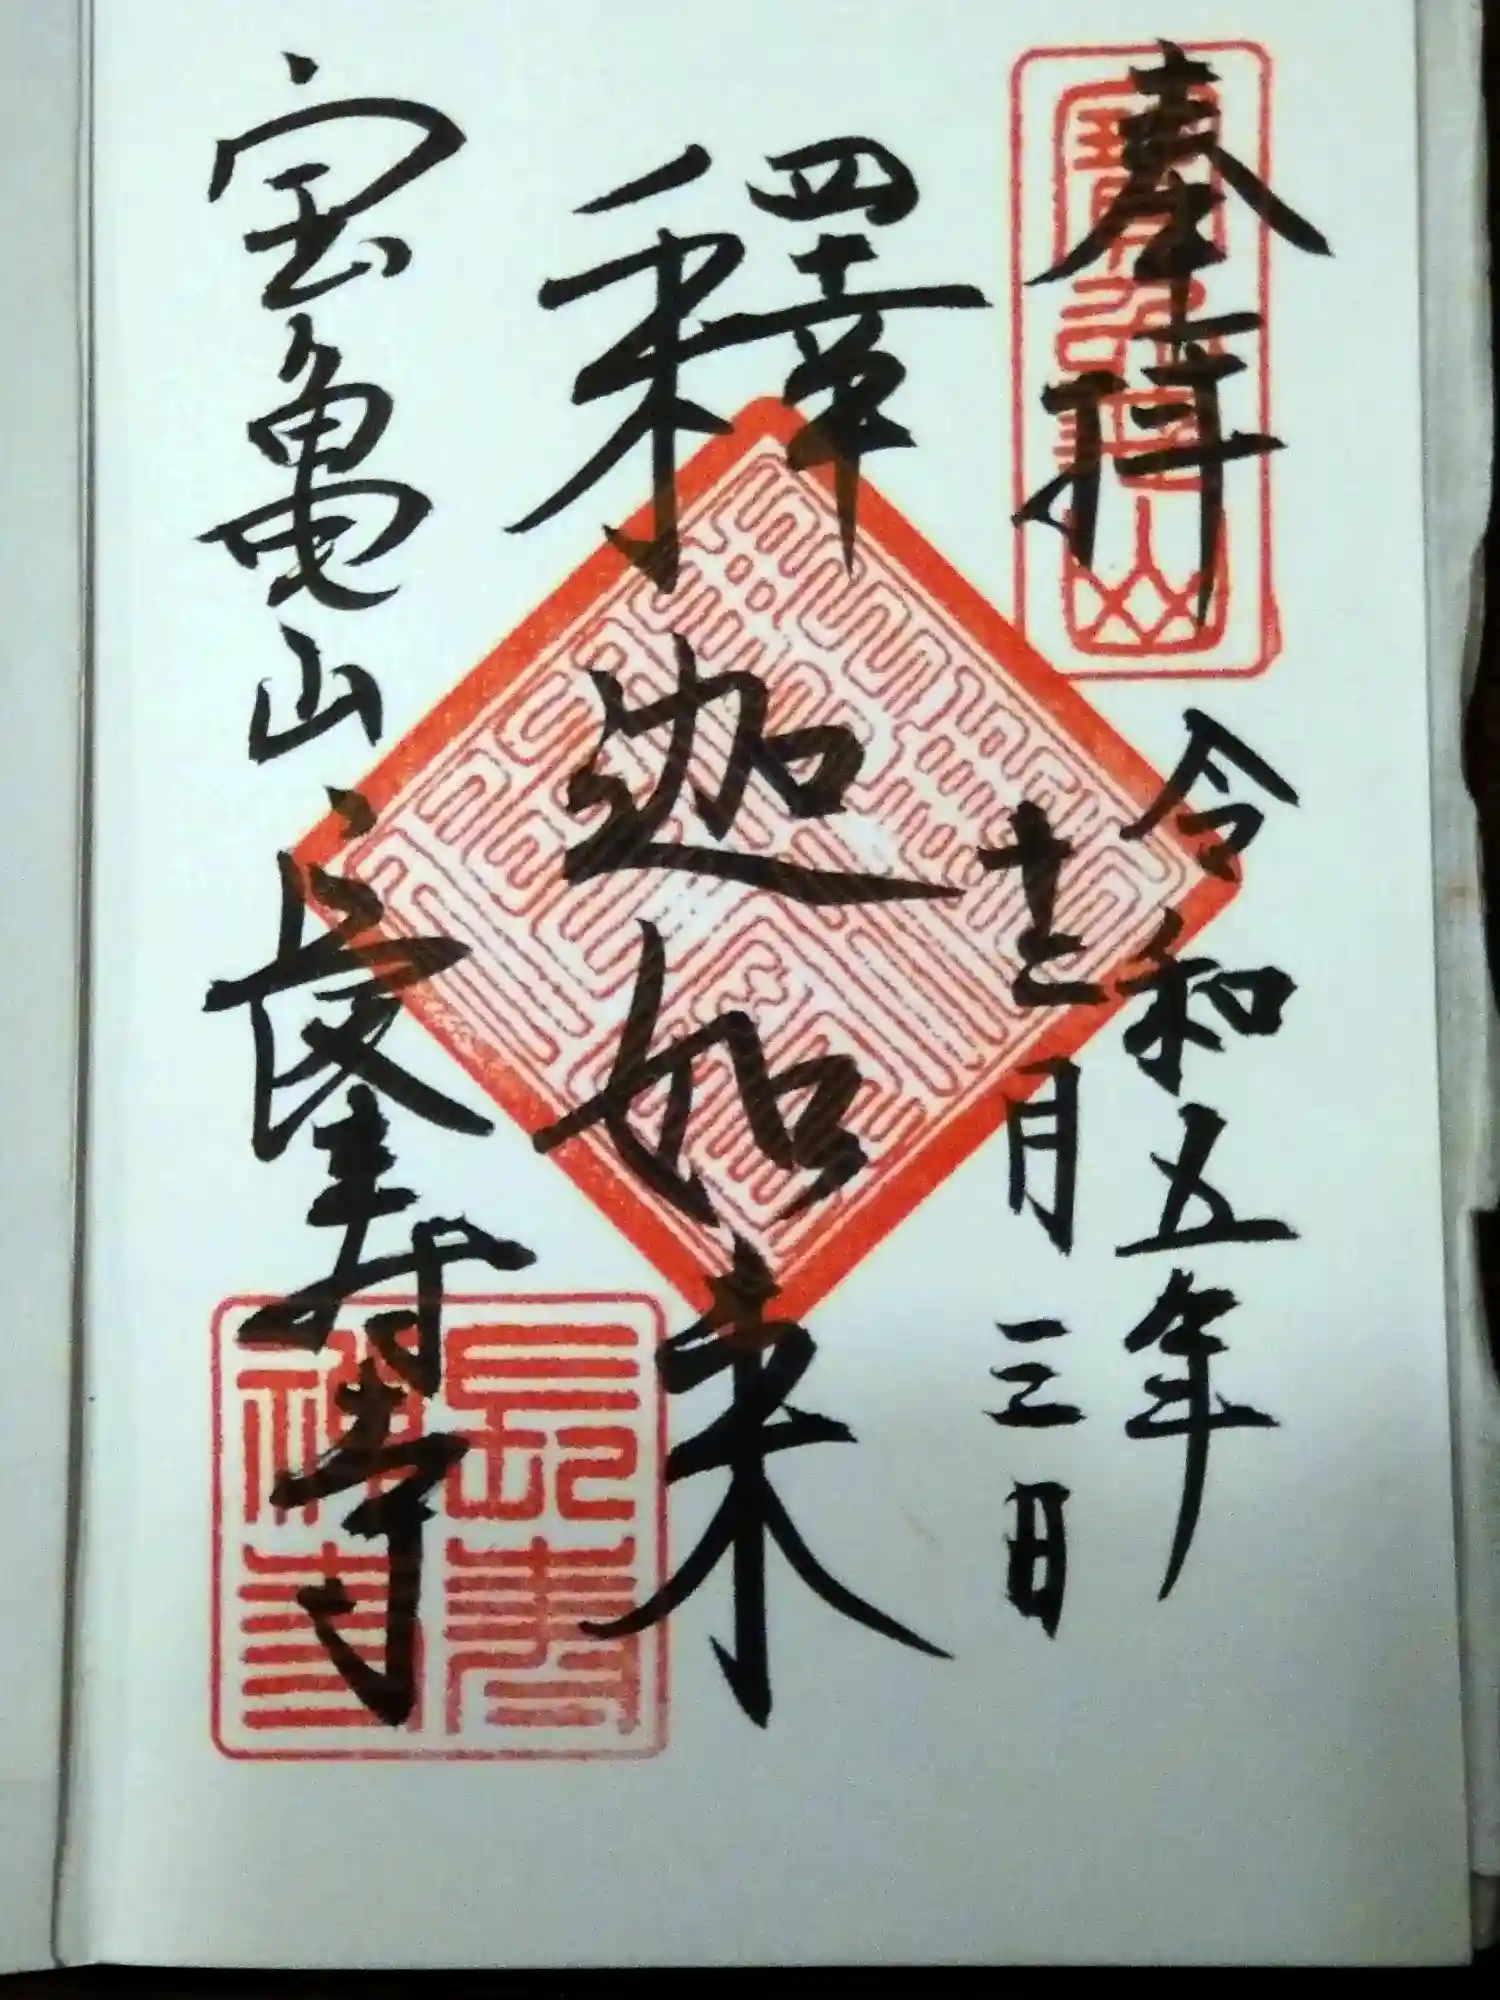 奉拝
令和五年
十二月三日
釋迦如来
宝亀山 長壽寺
長壽禅寺